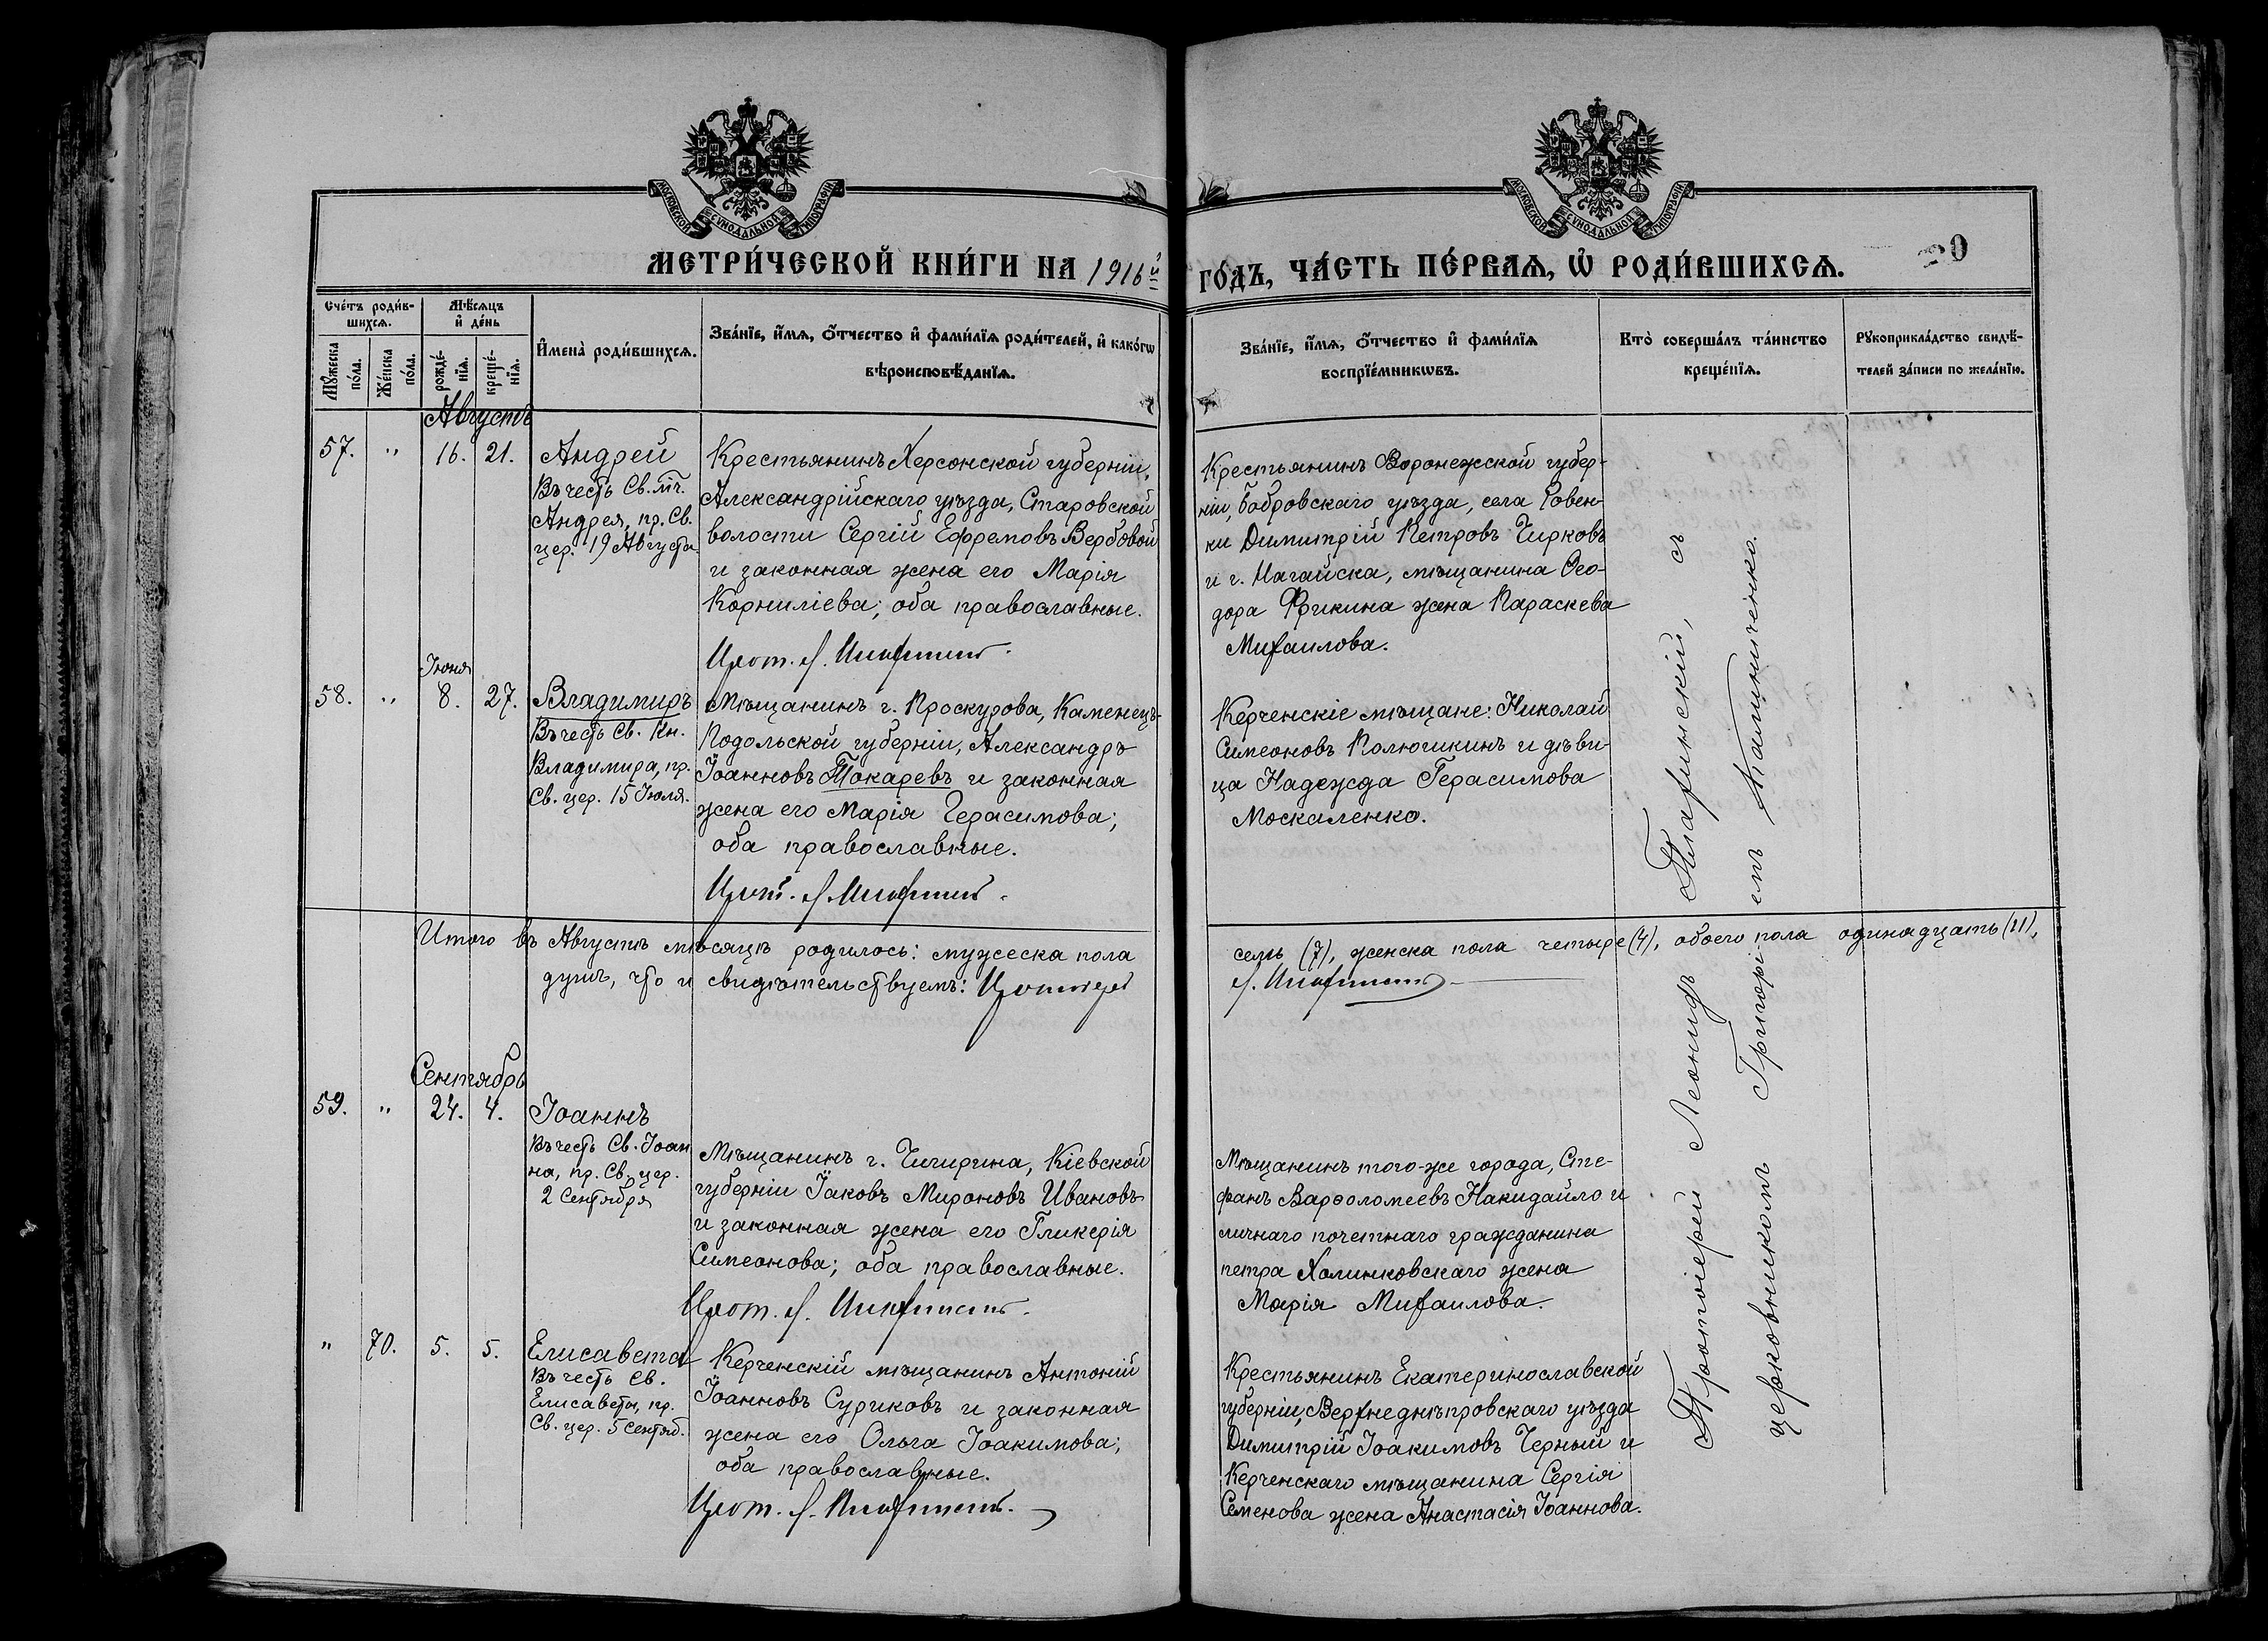 МОСКОВСКОЙ СѴНОДАЛЬНОЙ ТИПОГРАФІИ
МОСКОВСКОЙ СѴНОДАЛЬНОЙ ТИПОГРАФІИ
МЕТРИ́ЧЕСКОЙ КНИ́ГИ НА 1916й
ГО́ДЪ, ЧА́СТЬ ПЕ́РВАЯ, Ѡ҆ РОДИ́ВШИХСЯ.
Сче́тъ роди́в-
шихся.
Мꙋ́жеска по́ла.
Же́нска по́ла.
Мѣ́сяцъ
и҆ де́нь
рожде́-
нїя.
креще́-
нїя.
И҆мена̀ роди́вшихся.
Зва́нїе, и҆́мя, ѻ҆́тчество и҆ фами́лїя роди́телей, и҆ како́гѡ
вѣроисповѣ́данїя.
Зва́нїе, и҆́мя, ѻ҆́тчество и҆ фами́лїя
воспрїе́мникѡвъ.
Кто̀ соверша́лъ та́инство
креще́нїя.
Рꙋкоприкла́дство свидѣ́-
телей за́писи по жела́нїю.
Августъ
57. " 16. 21.
Андрей
Въ честь Св. мч.
Андрея, пр. Св.
цер. 19 Августа
Крестьянинъ Херсонской губерніи,
Александрійскаго уѣзда, Старовской
волости Сергій Ефремовъ Вербовой
и законная жена его Марія
Корниліева; оба православные.
Прот. Л.
Крестьянинъ Воронежской губер-
ніи, Бобровскаго уѣзда, села Ровен-
ки Димитрій Петровъ Чирковъ
и г. Нагайска, мѣщанина Ѳео-
дора Фрикина жена Параскева
Михаилова.
Іюня
58. " 8. 27.
Владимиръ
Въ честь Св. Кн.
Владимира, пр.
Св. цер. 15 Іюля.
Мѣщанинъ г. Проскурова, Каменецъ-
Подольской губерніи, Александръ
Іоанновъ Токаревъ и законная
жена его Марія Герасимова;
оба православные.
Прот. Л.
Керченскіе мѣщане: Николай
Симеоновъ Полюшкинъ и дѣви-
ца Надежда Герасимова
Москаленко.
Итого въ Августѣ мѣсяцѣ родилось: мужеска пола
семь (7), женска пола четыре (4), обоего пола одинадцать (11),
душъ, что и свидѣтельствуемъ: Протоіерей
Л.
Сентябрь
59. " 24. 4.
Іоаннъ
Въ честь Св. Іоан
на, пр. Св. цер.
2 Сентября
Мѣщанинъ г. Чигирина, Кіевской
губерніи Іаковъ Мироновъ Ивановъ
и законная жена его Гликерія
Симеонова; оба православные.
Прот. Л.
Мѣщанинъ того-же города, Сте-
фанъ Варѳоломеевъ Накидайло и
личнаго почетнаго гражданина
Петра Холинковскаго жена
Марія Михаилова.
" 70. 5. 5.
Елисавета
Въ честь Св.
Елисаветы, пр.
Св. цер. 5 Сентяб.
Керченскій мѣщанинъ Антоній
Іоанновъ Суриковъ и законная
жена его Ольга Іоакимова;
оба православные.
Прот. Л.
Крестьянинъ Екатеринославской
губерніи, Верхнеднѣпровскаго уѣзда
Димитрій Іоакимовъ Черный и
Керченскаго мѣщанина Сергія
Семенова жена Анастасія Іоаннова.
Протоіерей Леонидъ съ
церковникомъ Григоріемъ Калиниченко.